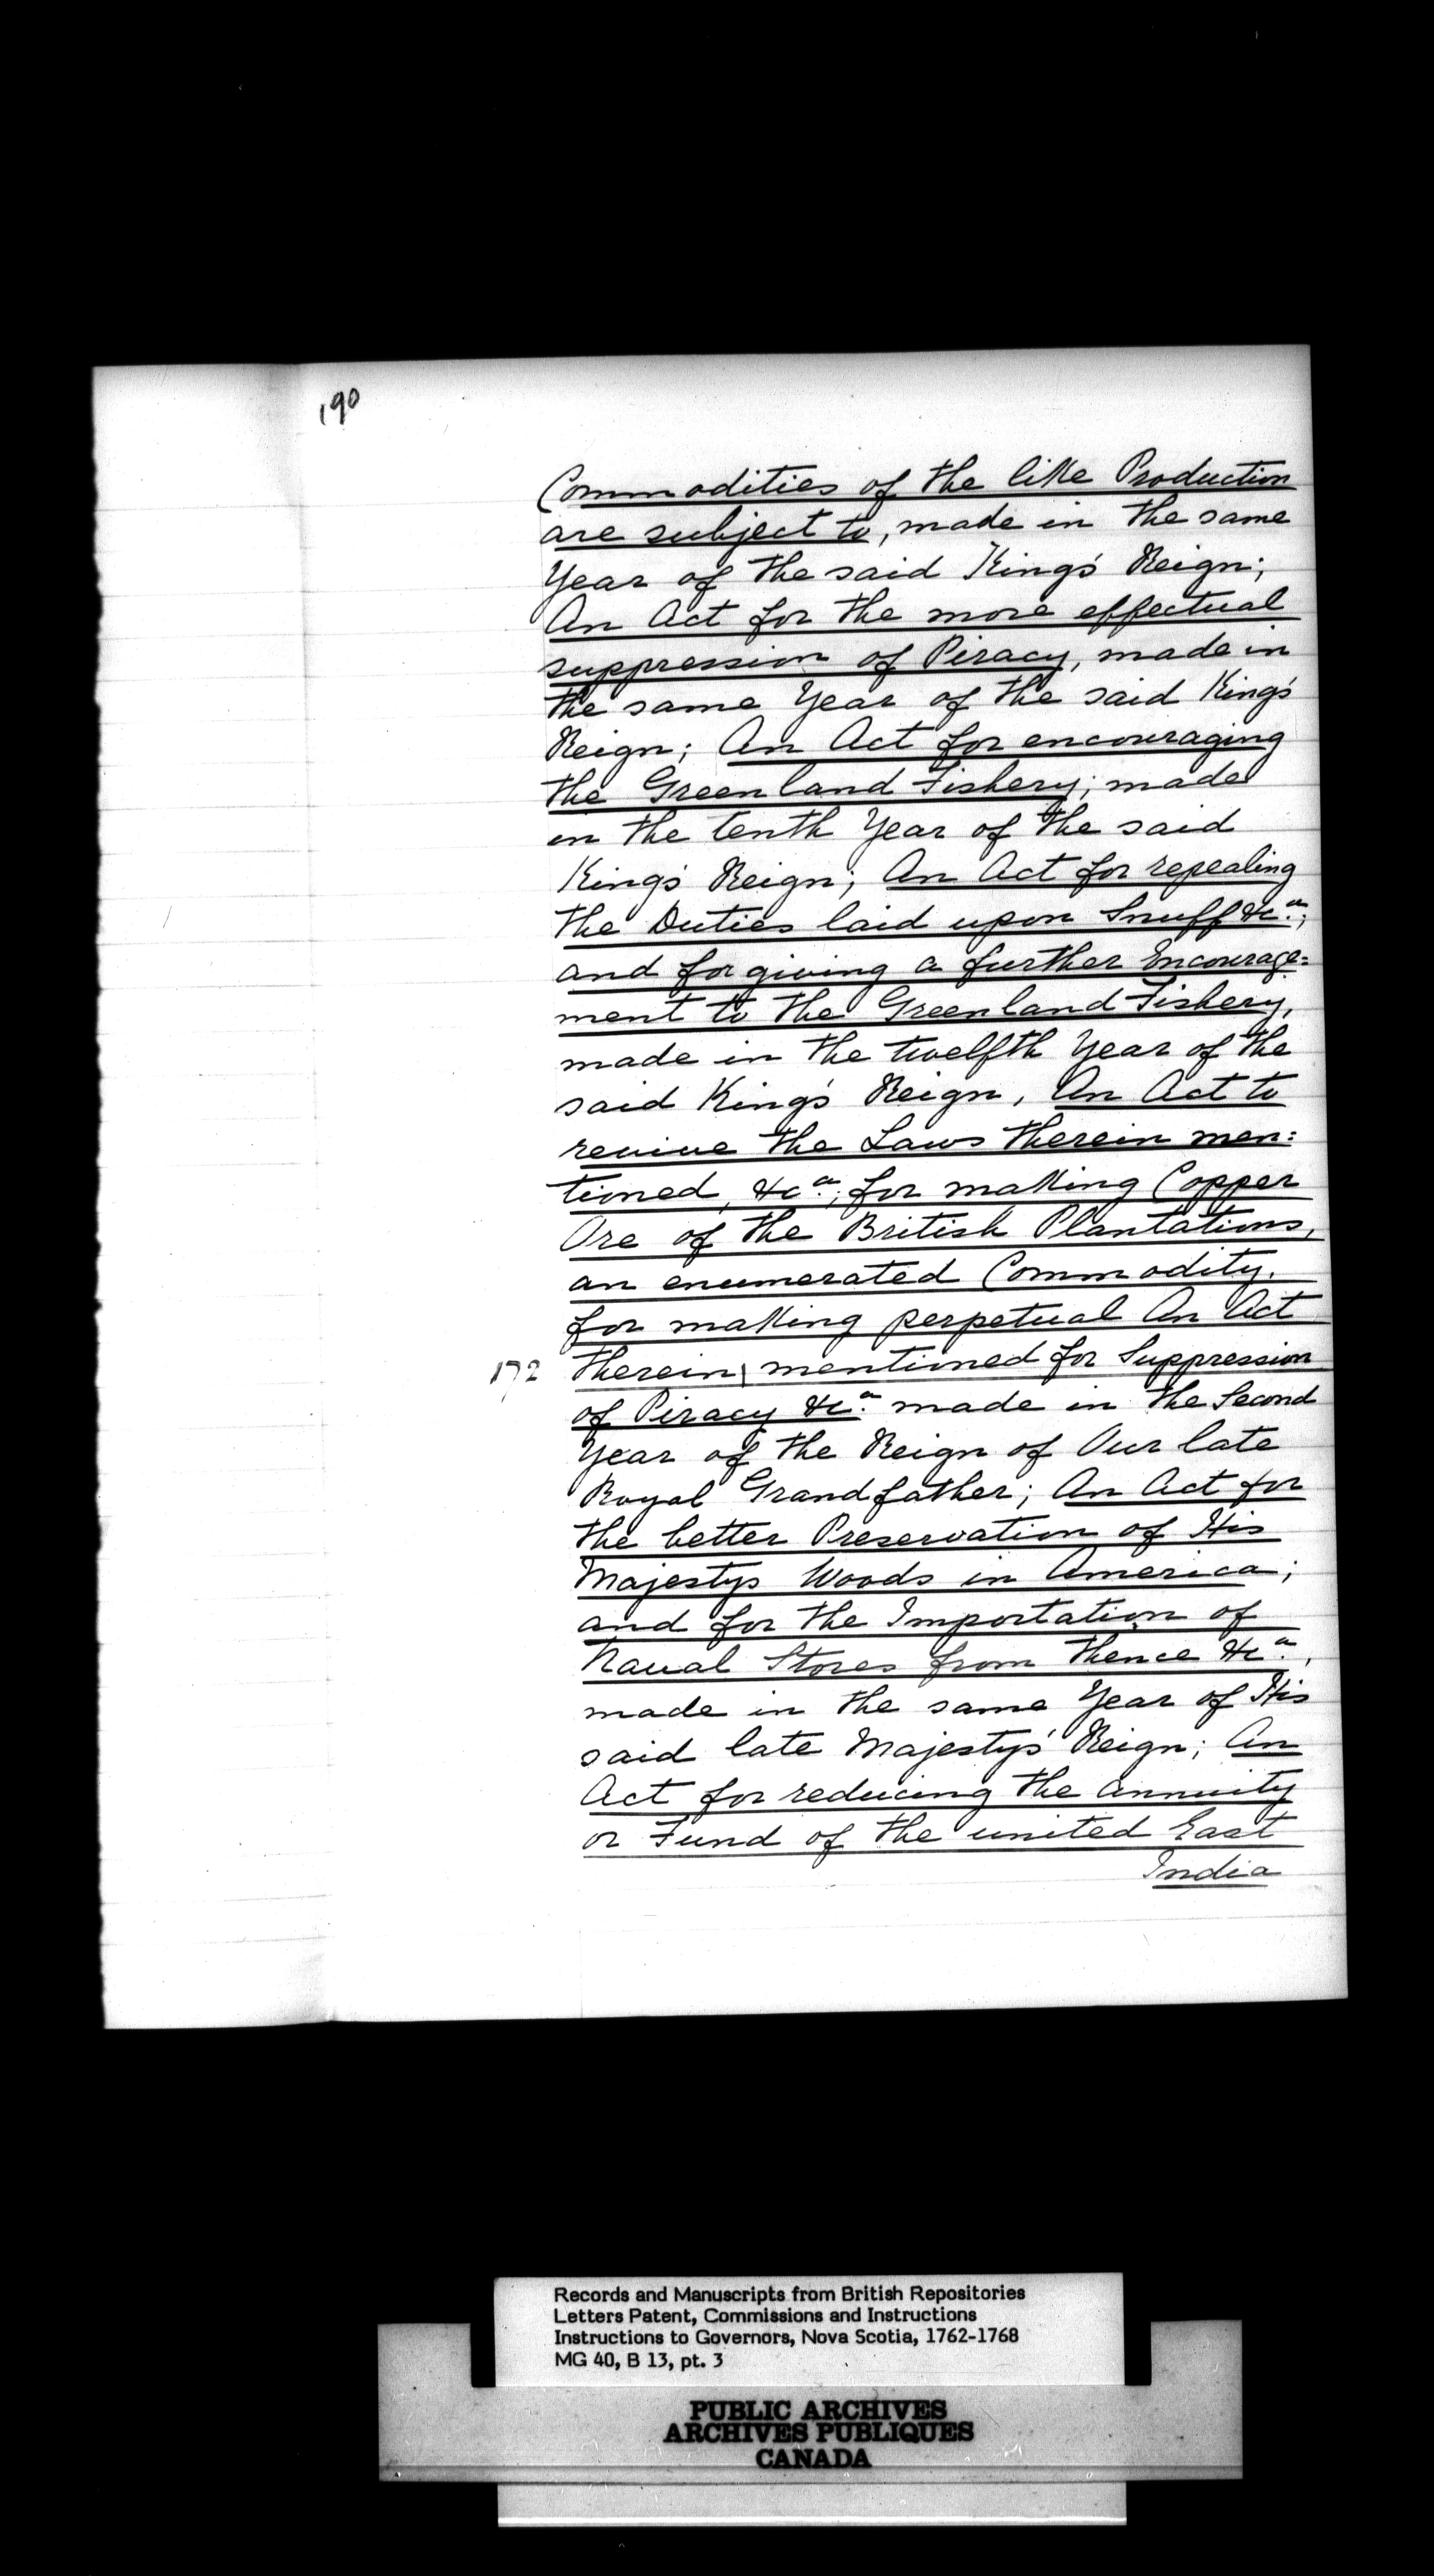 190
Commodities of the like Production
are subject to, made in the same
Year of the said King's Reign;
An Act for the more effectual
suppression of Piracy, made in
the same Year of the said King's
Reign; An Act for encouraging
the Greenland Fishery; made
in the tenth Year of the said
King's Reign; An Act for repealing
the Duties laid upon Snuff &c.a;
and for giving a further Encourage=
ment to the Greenland Fishery,
made in the twelfth Year of the
said King's Reign, An Act to
revive the Laws therein men:
tioned, &c.a; for making Copper
Ore of the British Plantations,
an enumerated Commodity.
for making perpetual An Act
172 therein| mentioned for Suppression
of Piracy &c.a made in the Second
Year of the Reign of Our late
Royal Grandfather; An Act for
the better Preservation of His
Majestys Woods in America;
and for the Importation of
Naval Stores from thence &c.a,
made in the same Year of His
said late Majesty's Reign; An
Act for reducing the annuity
or Fund of the united East
India
Records and Manuscripts from British Repositories
Letters Patent, Commissions and Instructions
Instructions to Governors, Nova Scotia, 1762-1768
MG 40, B 13, pt. 3
PUBLIC ARCHIVES
ARCHIVES PUBLIQUES
CANADA